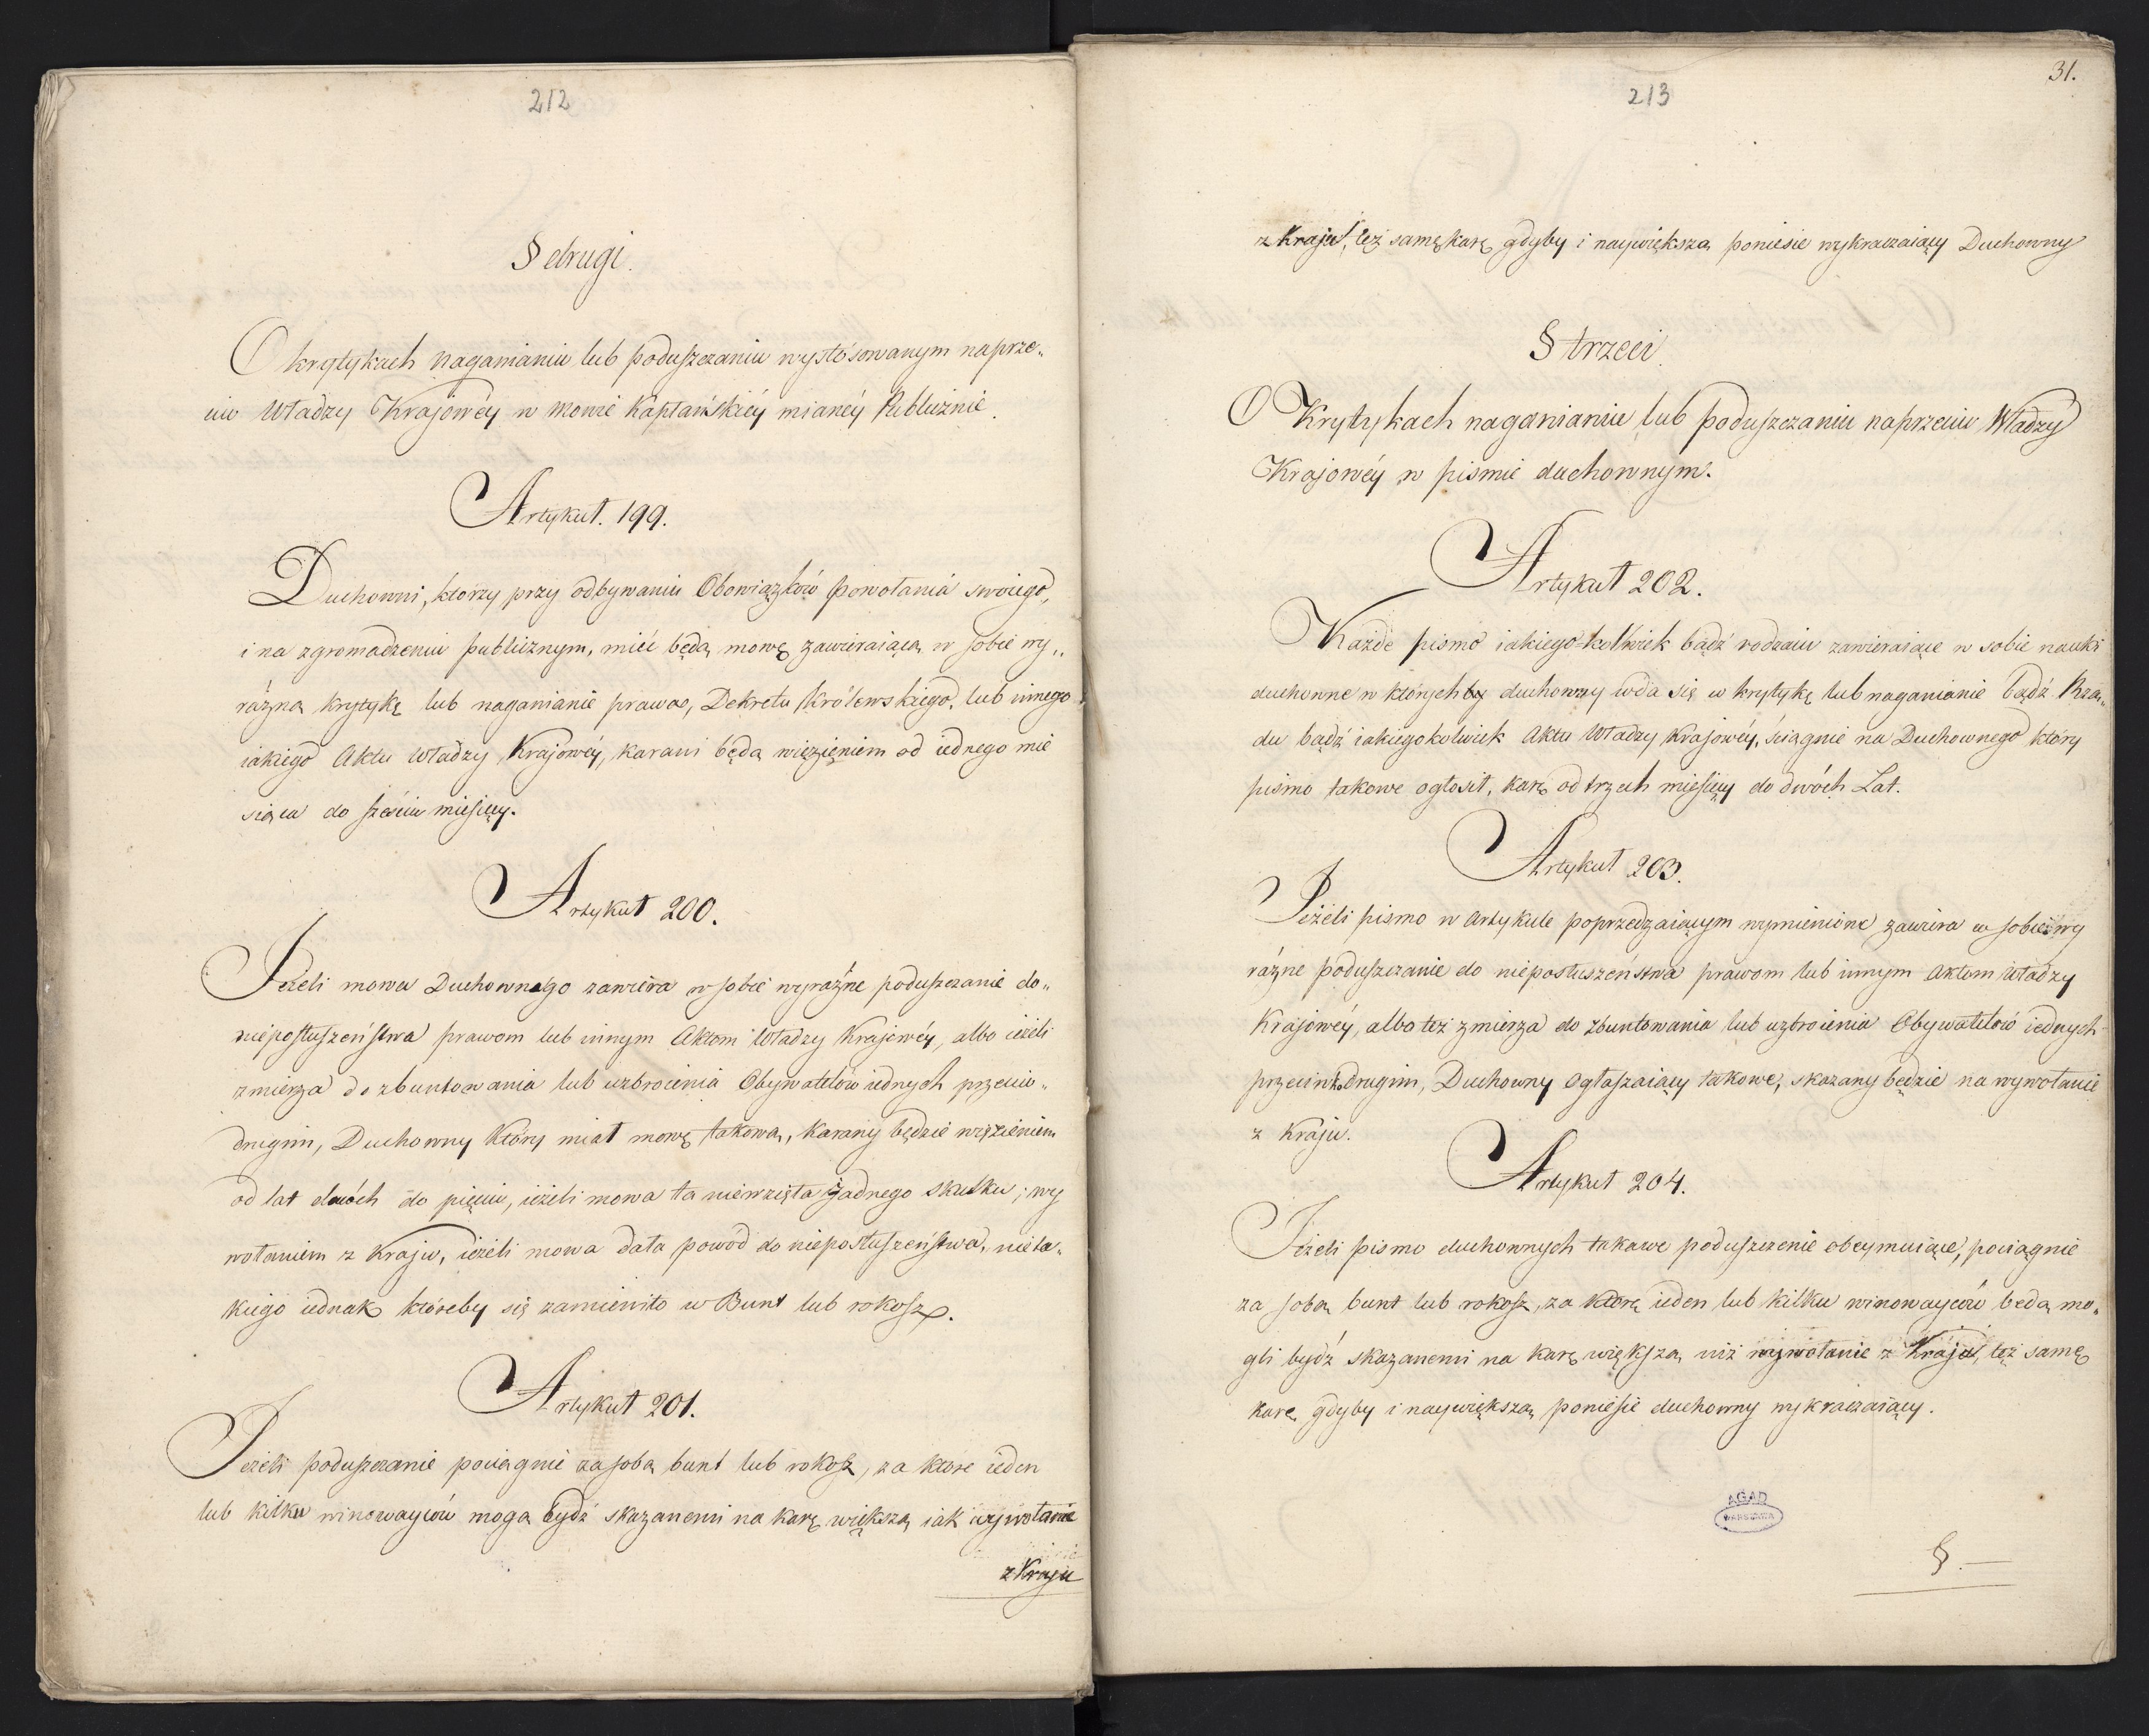 212
§ drugi.
O krytykach naganianiu lub poduszczaniu wystósowanym naprze„
ciw Władzy Krajowéy w mowie Kapłańskiéy mianéy Publicznie.
Artykuł. 199.
Duchowni, którzy przy odbywaniu Obowiązków powołania swoiego,
i na zgromadzeniu publicznym, mieć będą mowę zawieraiącą w sobie wy„
raźną krytykę lub naganianie prawa, Dekretu Królewskiego, lub innego
iakiego Aktu Władzy Krajowéy, karani będą więzięniem od iednego mie
siąca do sześciu miesięcy.
Artykuł 200.
Jeżeli mowa Duchownego zawiera w sobie wyraźne poduszczanie do„
nieposłuszeństwa prawom lub innym Aktom Władzy Krajowéy, albo ieżeli
zmierza do zbuntowania lub uzbroienia Obywatelów iednych przeciw„
drugim, Duchowny który miał mowę takową, karany będzie więzieniem
od lat dwóch do pięciu, ieżeli mowa ta niewzięła żadnego skutku; wy
wołaniem z Kraju, ieżeli mowa dała powód do nieposłuszeństwa, nieta„
kiego iednak któreby się zamieniło w Bunt lub rokosz.
Artykuł 201.
Jeżeli poduszczanie pociągnie za sobą bunt lub rokosz, za które ieden
lub kilku winowayców mogą bydź skazanemi na karę większą iak wywołanie
z Kraju
31.
213
z Kraju, też samę karę gdyby i naywiększą poniesie wykraczaiący Duchowny
§ trzeci.
O Krytykach naganianiu lub poduszczaniu naprzeciw Władzy
Krajowéy w piśmie duchownym.
Artykuł 202.
Każde pismo iakiego-kolwiek bądź rodzaiu zawieraiące w sobie nauki
duchowne w których by duchowny wda się w krytykę lub naganianie bądź Rzą„
du bądź iakiegokolwiek Aktu Władzy Krajowéy, ściągnie na Duchownego który
pismo takowe ogłosił, karę od trzech miesięcy do dwóch Lat.
Artykuł 203.
Jeżeli pismo w Artykule poprzedzaiącym wymienione zawiera w sobie wy
raźne poduszczanie do nieposłuszeństwa prawom lub innym Aktom Władzy
Krajowéy, albo też zmierza do zbuntowania lub uzbroienia Obywatelów iednych
przeciwko drugim, Duchowny ogłaszaiący takowe, skazany będzie na wywołanie
z Kraju.
Artykuł 204.
Jeżeli pismo duchownych takowe poduszczenie obeymuiące, pociągnie
za sobą bunt lub rokosz, za którę ieden lub kilku winowayców będą mo„
gli bydź skazanemi na karę większą niż wywołanie z Kraju, też samę
karę gdyby i naywiększą poniesie duchowny wykraczaiący.
AGAD
WARSZAWA
§. —